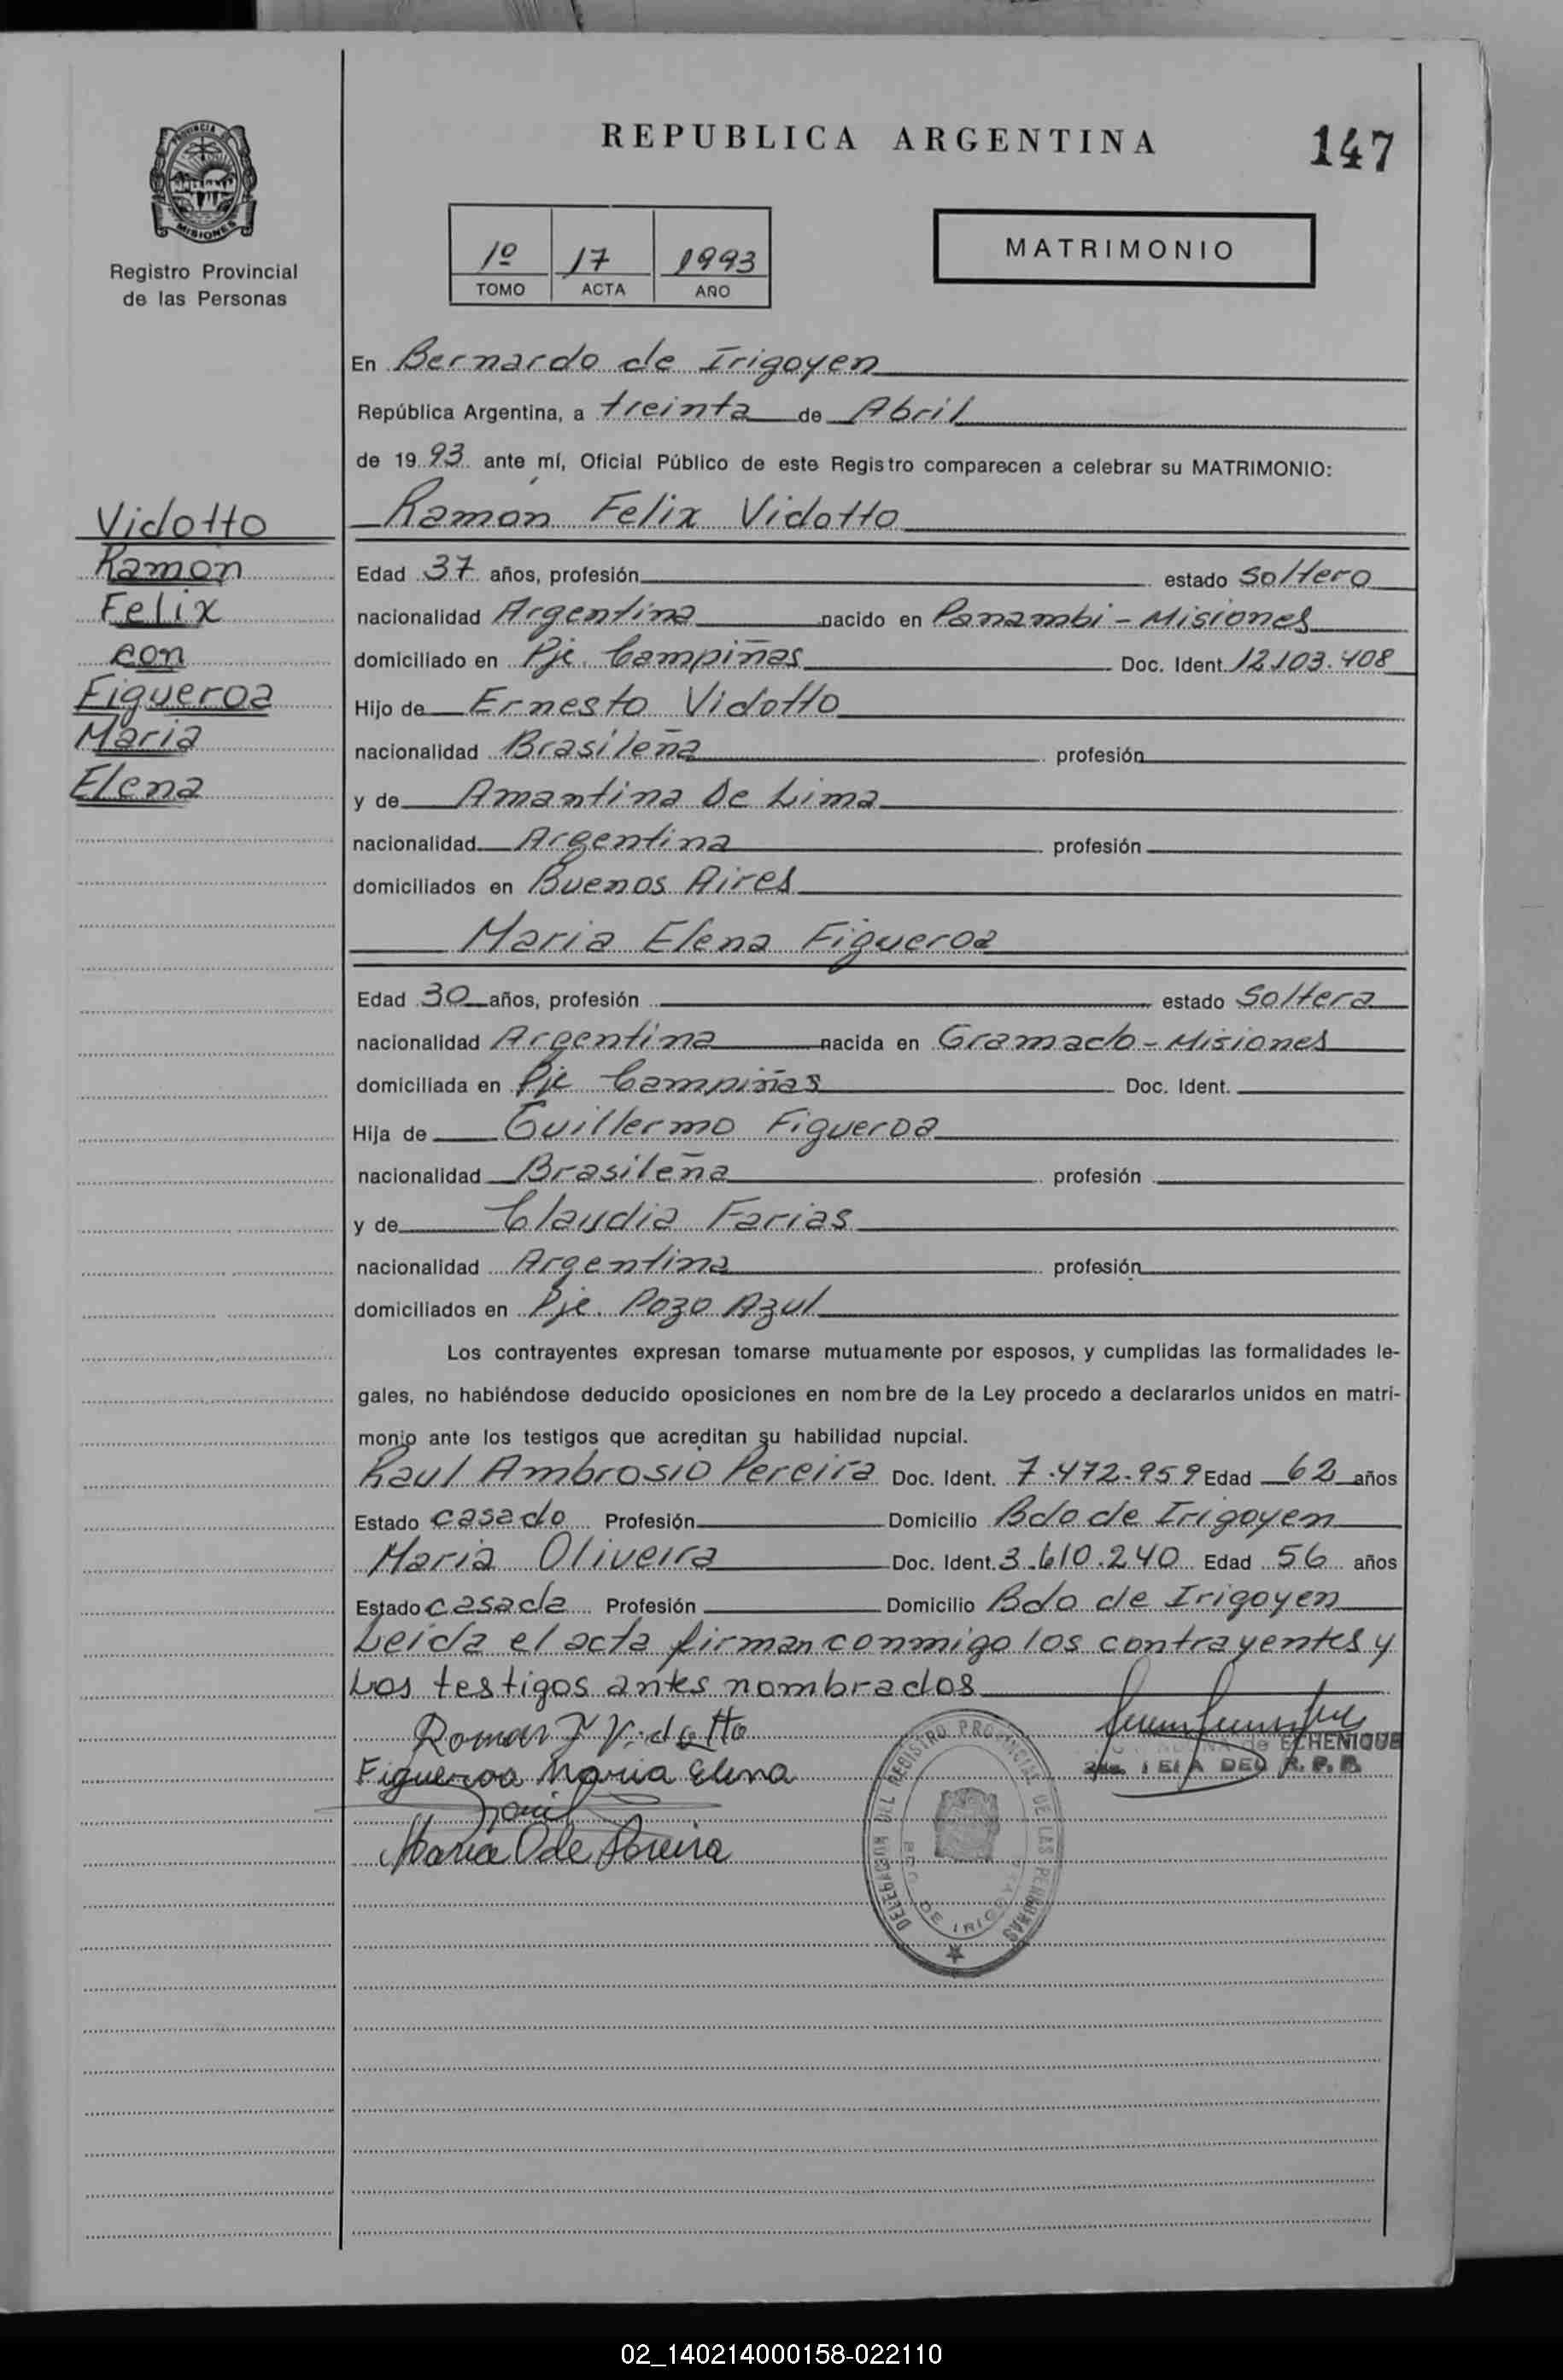 REPUBLICA ARGENTINA
147
PROVINCIA DE
MISIONES
Registro Provincial
de las Personas
1º 17 1993
TOMO ACTA AÑO
MATRIMONIO
En Bernardo de Irigoyen
República Argentina, a treinta de Abril
de 1993 ante mí, Oficial Público de este Registro comparecen a celebrar su MATRIMONIO:
Vidotto
Ramón
Felix
con
Figueroa
Maria
Elena
Ramón Felix Vidotto
Edad 37 años, profesión estado Soltero
nacionalidad Argentina nacido en Panambi - Misiones
domiciliado en Pje. Campiñas Doc. Ident. 12.103.408
Hijo de Ernesto Vidotto
nacionalidad Brasileña profesión
y de Amantina De Lima
nacionalidad Argentina profesión
domiciliados en Buenos Aires
Maria Elena Figueroa
Edad 30 años, profesión estado Soltera
nacionalidad Argentina nacida en Gramado - Misiones
domiciliada en Pje Campiñas Doc. Ident.
Hija de Guillermo Figueroa
nacionalidad Brasileña profesión
y de Claudia Farias
nacionalidad Argentina profesión
domiciliados en Pje. Pozo Azul
Los contrayentes expresan tomarse mutuamente por esposos, y cumplidas las formalidades le-
gales, no habiéndose deducido oposiciones en nombre de la Ley procedo a declararlos unidos en matri-
monio ante los testigos que acreditan su habilidad nupcial.
Raul Ambrosio Pereira Doc. Ident. 7.472.959 Edad 62 años
Estado casado Profesión Domicilio Bdo de Irigoyen
Maria Oliveira Doc. Ident. 3.610.240 Edad 56 años
Estado casada Profesión Domicilio Bdo de Irigoyen
Leida el acta firman conmigo los contrayentes y
Los testigos antes nombrados
Roman F Vidotto
Figueroa Maria Elena
Maria O de
de ECHENIQUE
DEL R. P. P.
DELEGACION DEL REGISTRO PROVINCIAL DE LAS PERSONAS
BDO. DE IRIGOYEN
02_140214000158-022110